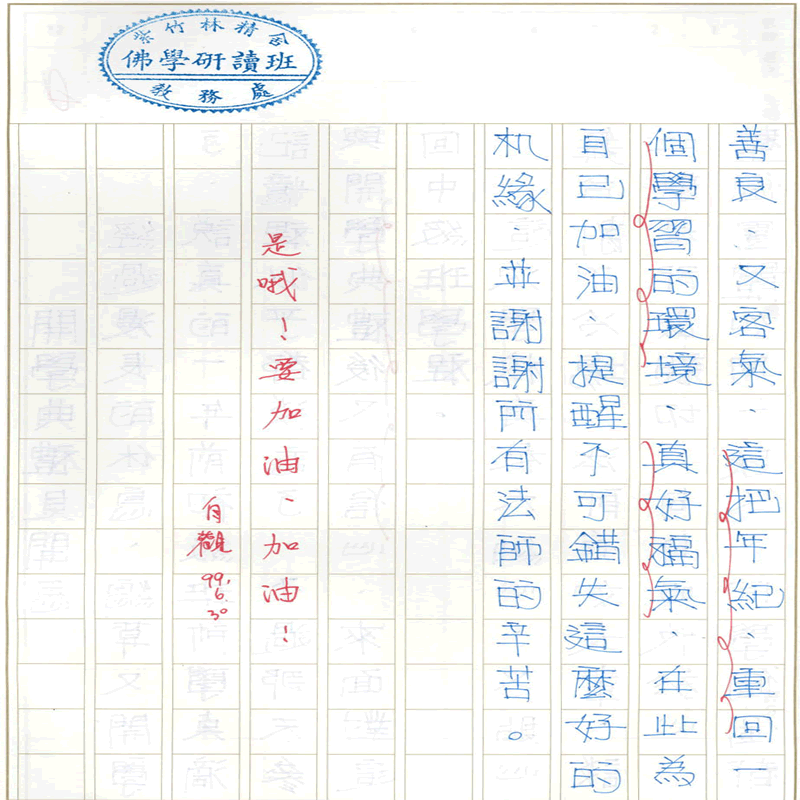 紫竹林精舍
佛學研讀班
教務處
善良、又客氣、這把年紀、重回一
個學習的環境、真好福氣、在此為
自己加油、提醒不可錯失這麼好的
机緣、並謝謝所有法師的辛苦。
是哦！要加油、加油！
自觀
99.6.30